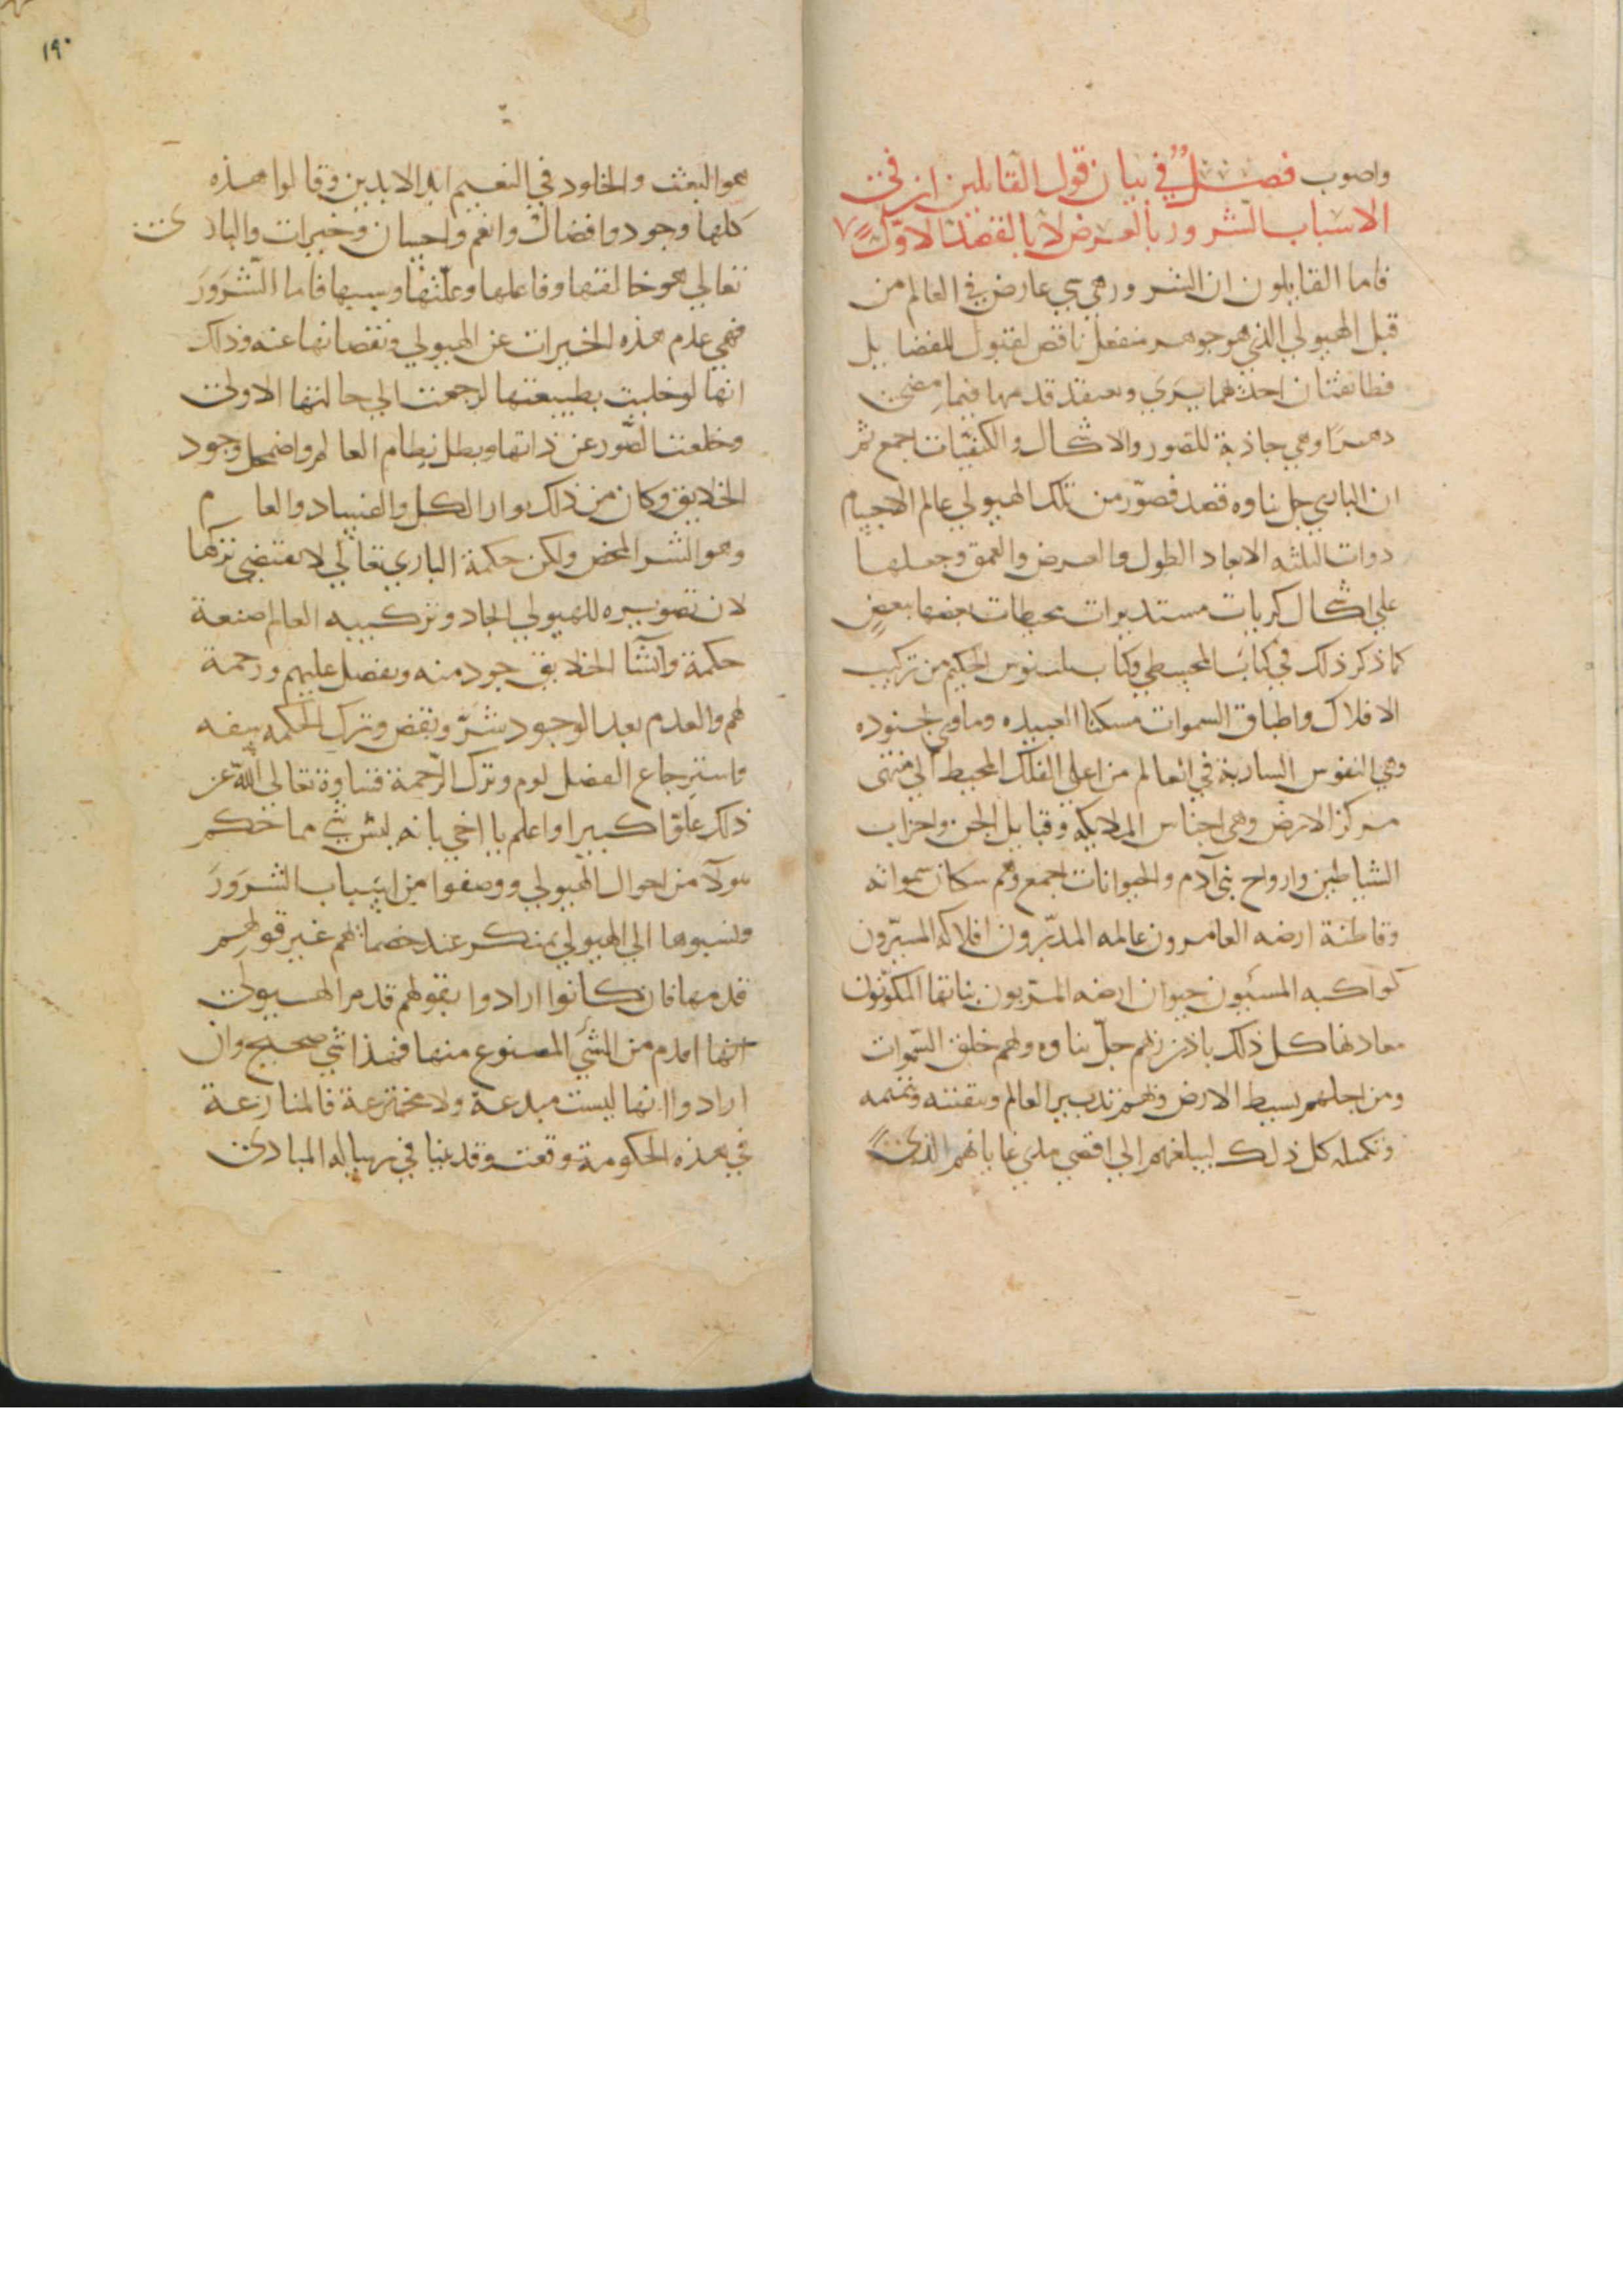 واصوب فصل في بيان قول القايلين ان في
الاسباب الشرور بالعرض لا بالقصد الاول
فاما القايلون ان الشرور هي شي عارض في العالم من
قبل الهيولي الذي هو جوهر منفعل ناقص لقبول الفضايل
فطائفتان احدهما يرى ويعتقد قدمها فيما مضى
دهرا وهي جاذبة للصور والاشكال والكيفيات اجمع ثم
ان الباري جل ثناوه قصد فصور من تلك الهيولي عالم الاجسام
ذوات الثلثه الابعاد الطول والعرض والعمق وجعلها
علي اشكال كريات مستديرات محيطات بعضها ببعض
كما ذكر ذلك في كتاب المجسطي وكتاب الحكيم من تركيب
الافلاك واطباق السموات مسكنا لعبيده وماوى لجنوده
وهي النفوس السارية في العالم من اعلي الفلك المحيط الي منتهى
مركز الارض وهي اجناس الملايكه وقبايل الجن واحزاب
الشياطين وارواح بني آدم والحيوانات اجمع وهم سكان سمواته
وقاطنة ارضه العامرون عالمه المدبرون افلاكه المسيرون
كواكبه المسيبون حيوان ارضه المربون نباتها المكونون
معادنها كل ذلك باذن ربهم جل ثناوه ولهم خلق السموات
ومن اجلهم بسيط الارض ولهم تدبير العالم وبقيته وتتميمه
وتكميله كل ذلك ليبلغهم الي اقصى مدى غاياتهم الذي
١٩٠
هو البعث والخلود في النعيم ابد الابدين وقالوا هذه
كلها وجود وافضال وانعم واحسان وخيرات والباري
تعالي هو خالقها وفاعلها وعلتها وسببها فاما الشرور
فهي عدم هذه الخيرات عن الهيولي ونقصانها عنه وذلك
انها لو خليت بطبيعتها لرجعت الي حالتها الاولى
وخلعت الصور عن ذاتها وبطل نظام العالم واضمحل وجود
الخلايق وكان من ذلك بوار الكل والفساد والعام
وهو الشر المحض ولكن حكمة الباري تعالي لا تقتضي تركها
لان تصويره للهيولي ايجاد وتركيبه العالم صنعة
حكمة وانشا الخلايق جود منه وتفضل عليهم ورحمة
لهم والعدم بعد الوجود شر ونقض وترك الحكمه سفه
واسترجاع الفضل لوم وترك الرحمة قساوة تعالى الله عن
ذلك علوا كبيرا واعلم يا اخي بانه ليس شي مما حكم
هولآ من احوال الهيولي ووصفوا من اسباب الشرور
ونسبوها الي الهيولي بمنكر عند خصمائهم غير قولهم
قدمها فان كانوا ارادوا بقولهم قدم الهيولى
انها اقدم من الشي المصنوع منها فهذا شي صحيح وان
ارادوا انها ليست مبدعة ولا مخترعة فالمنازعة
في هذه الحكومة وقعت وقد بينا في رساله المبادى